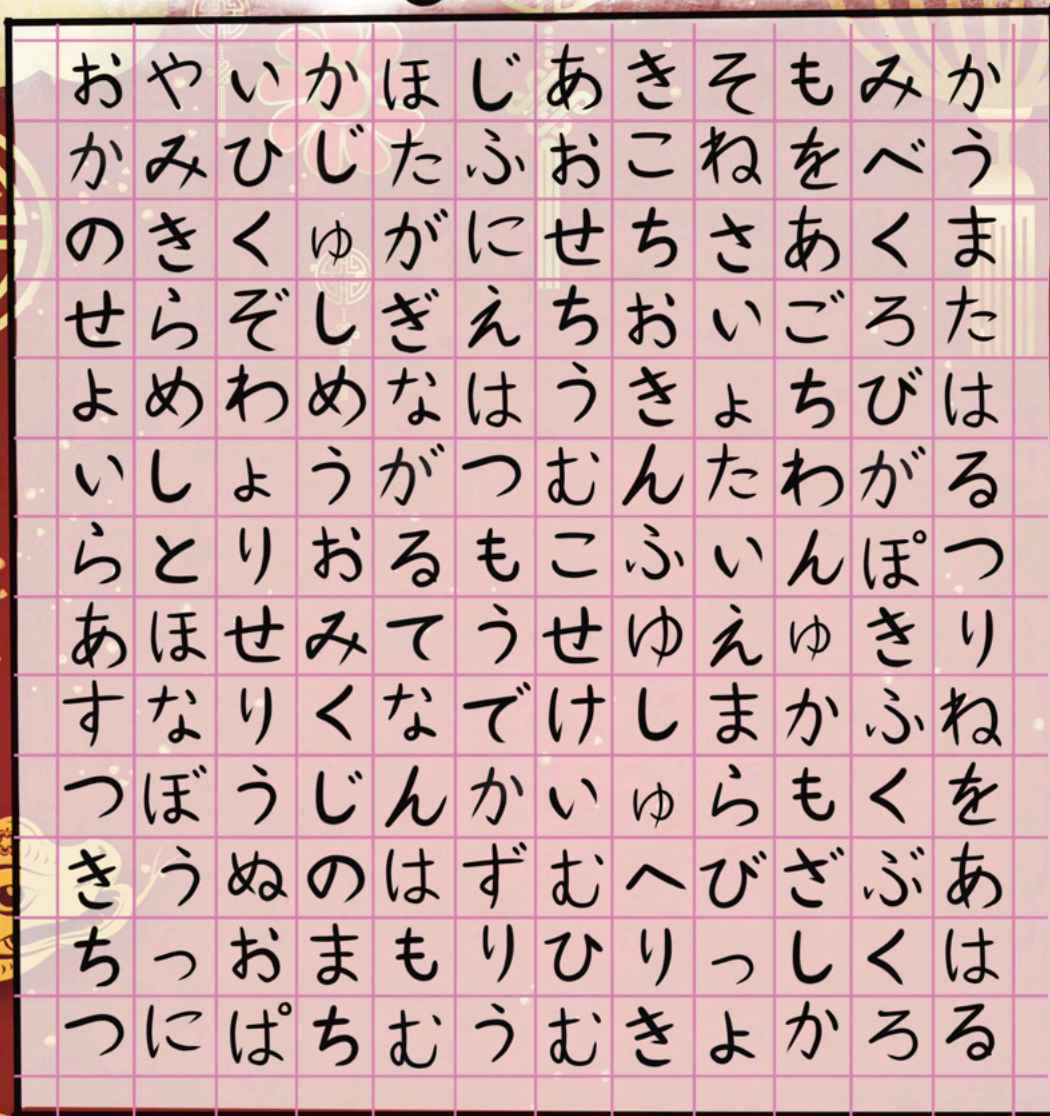 おやいかほじあきそもみか
かみひじたふおこねをべう
のきくゅがにせちさあくま
せらぞしぎえちおいごろた
よめわめなはうきょちびは
いしょうがつむんたわがる
らとりおるもこふいんぽつ
あほせみてうせゆえゅきり
すなりくなでけしまかふね
つぼうじんかいゅらもくを
きうぬのはずむへびざぶあ
ちっおまもりひりっしくは
つにぱちむうむきょかろる